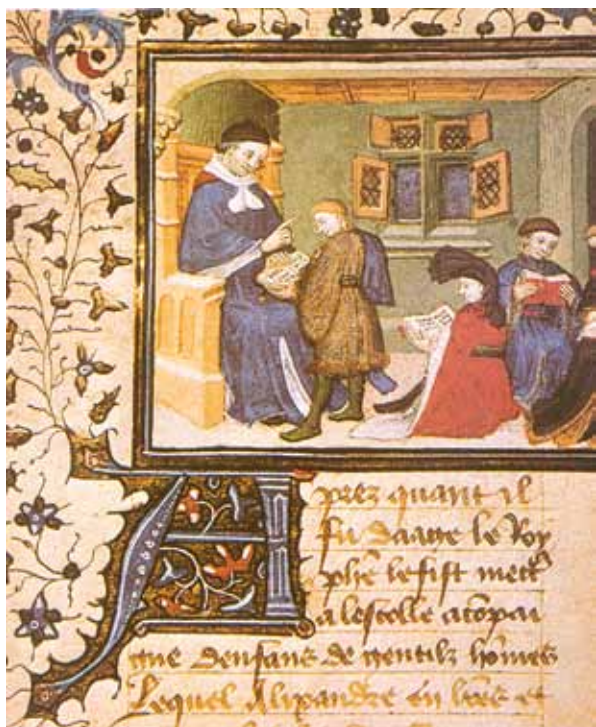 Aprez quant il
fu daage le Roy
phe le fist mectre
a lescolle acompai
gne denfans de gentilz hommes
Lequel Alixandre en lres et